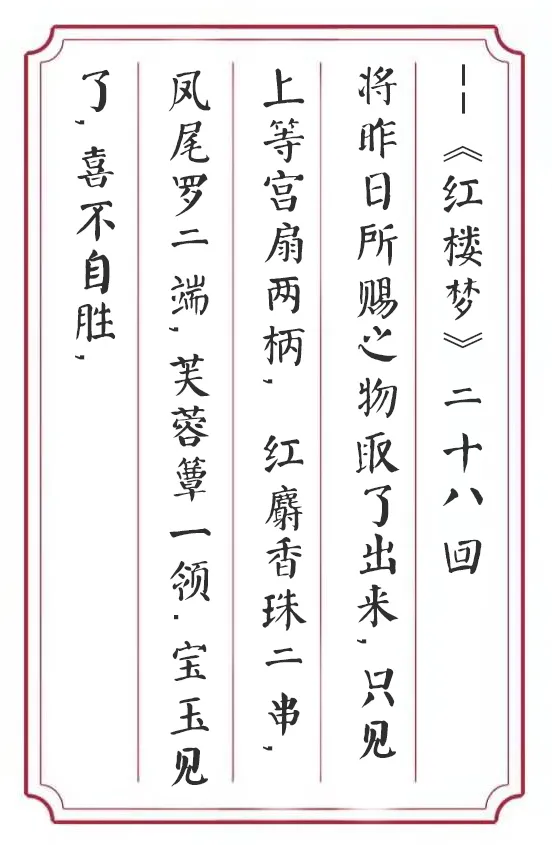 ——《红楼梦》二十八回
将昨日所赐之物取了出来,只见
上等宫扇两柄,红麝香珠二串,
凤尾罗二端,芙蓉簟一领.宝玉见
了,喜不自胜,